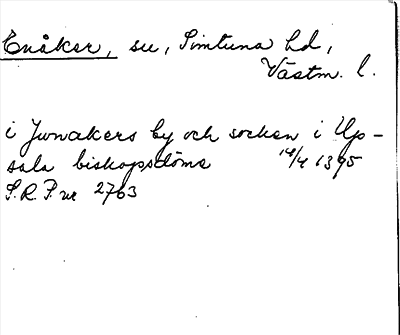 Enåker, sn, Simtuna hd,
Västm. l.
i Jwnakers by och socken i Up-
sala biskopsdöme 14/4 1395
S.R.P. nr 2763